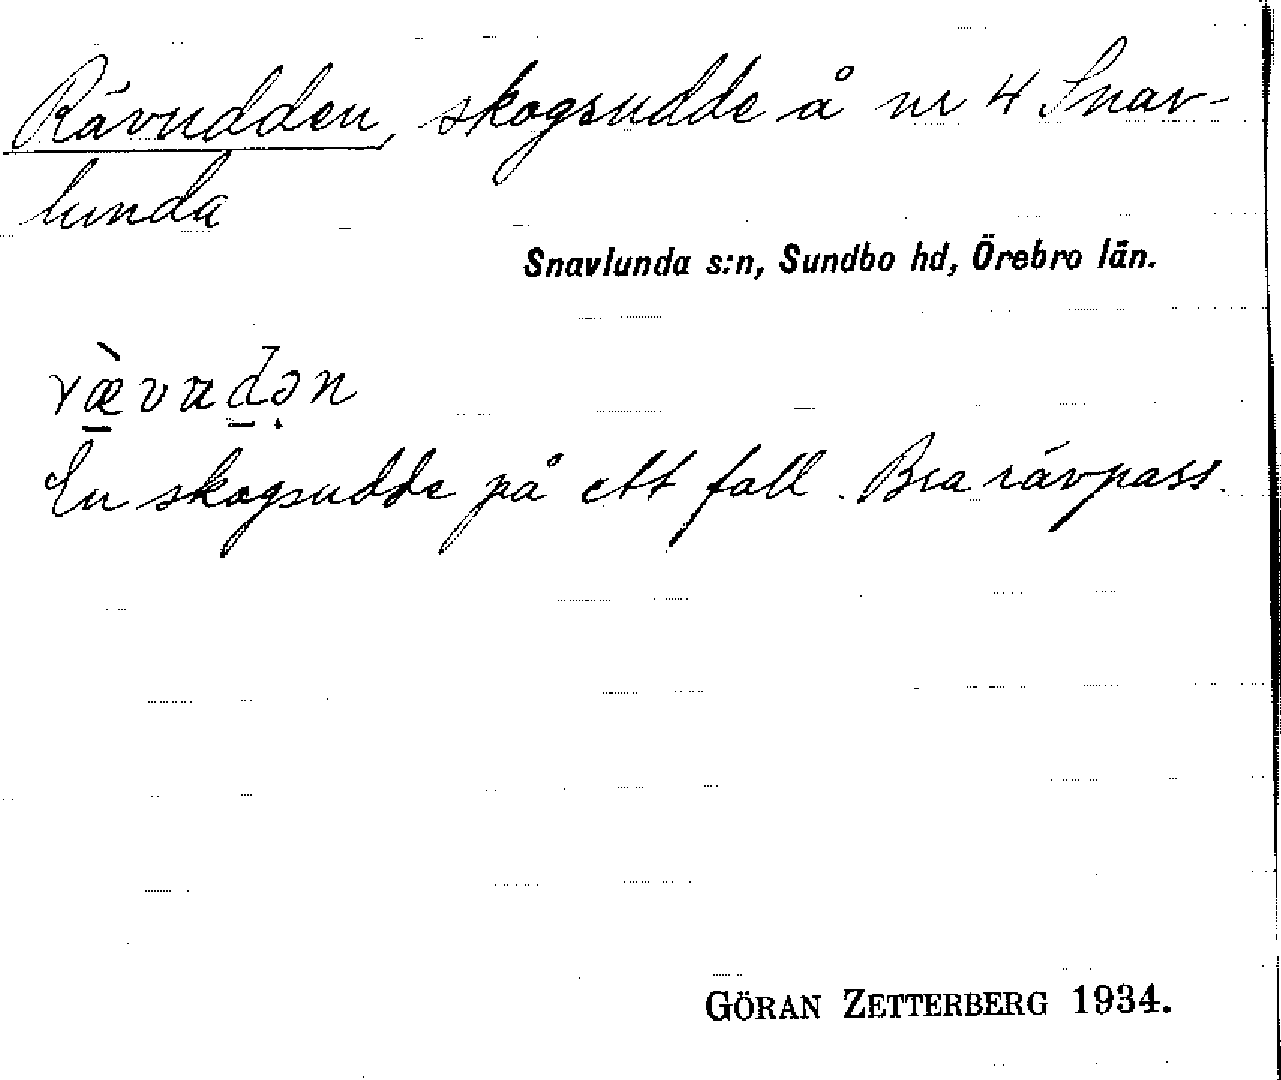 Rävudden, skogsudde å nr 4 Snav-
lunda
Snavlunda s:n, Sundbo hd, Örebro län.
ræ̀vudən
En skogsudde på ett fall. Bra rävpass.
GÖRAN ZETTERBERG 1934.